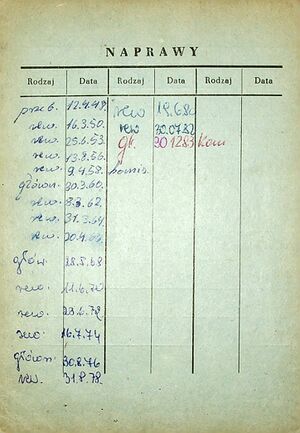 NAPRAWY
Rodzaj Data Rodzaj Data Rodzaj Data
przeb. 12.4.49. rew 19.6.80
rew. 16.3.50. rew 30.07.82
rew. 25.6.53. gł. 30 12 83 Kom
rew. 13.8.56.
rew. 9.4.58.
główn. 30.3.60.
rew. 8.3.62.
rew. 31.3.64.
rew. 20.4.66.
głów. 28.5.68
rew. 11.6.70
rew. 23.6.72
rew. 16.7.74
główn. 30.8.76
rew. 31.8.78.